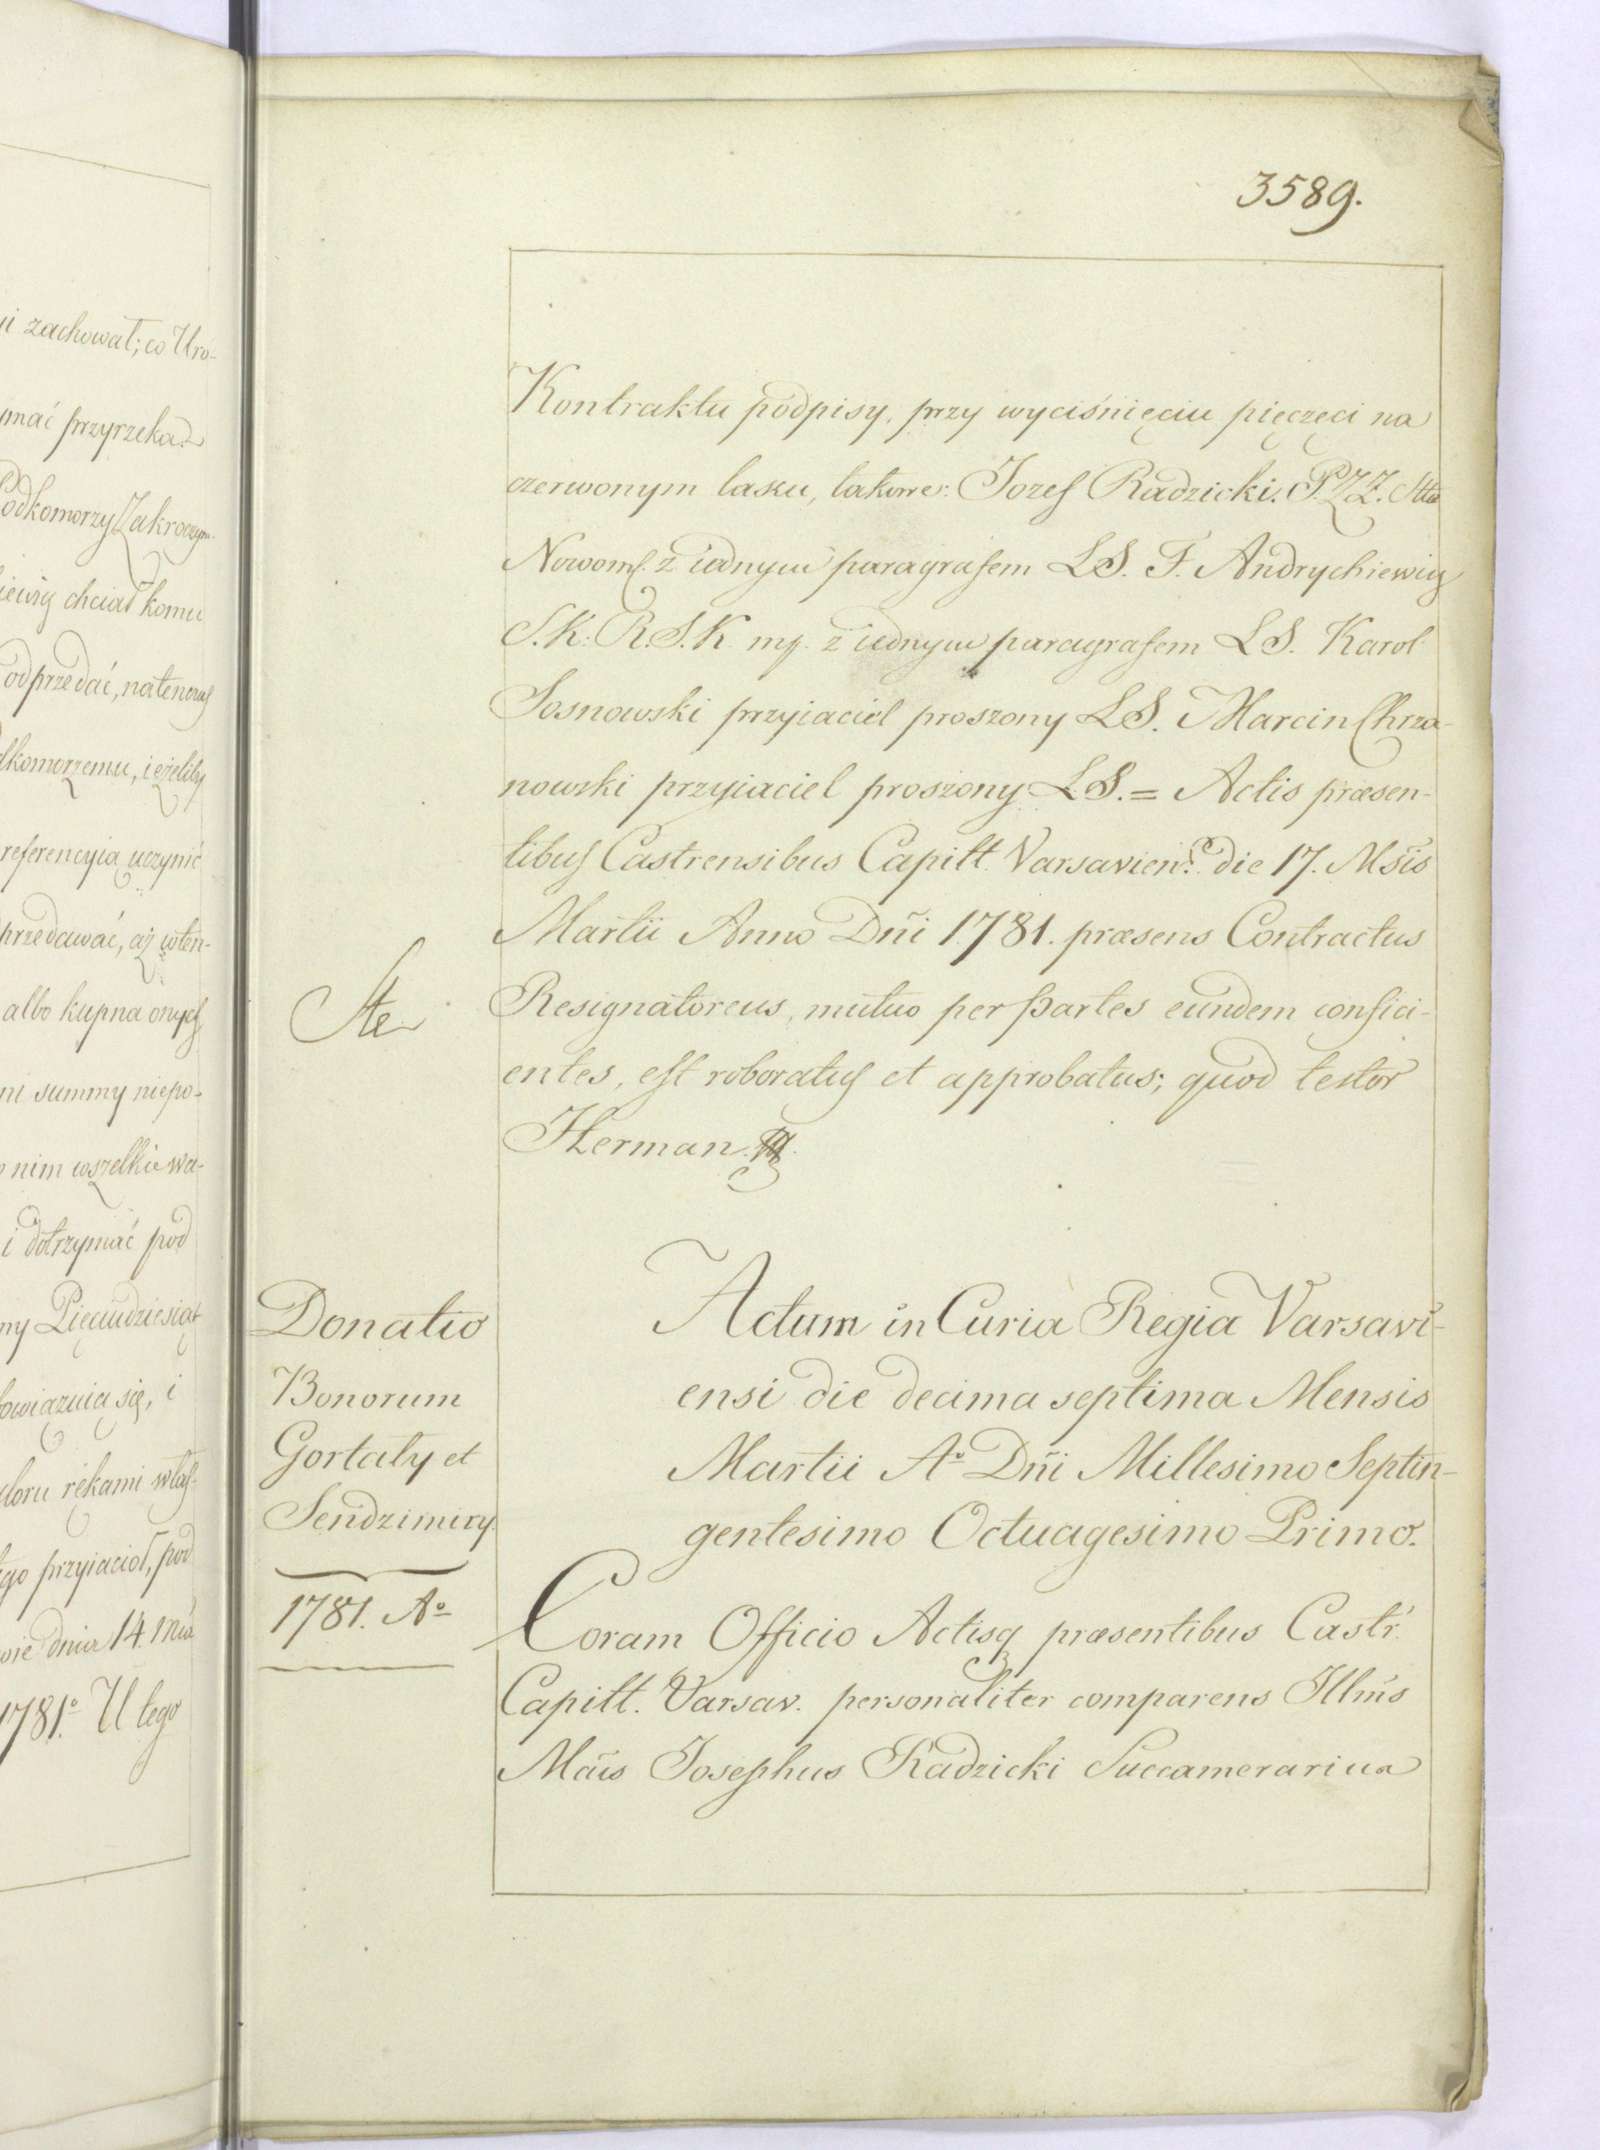 3589.
Kontraktu podpisy, przy wyciśnięciu pięczęci na
czerwonym lasku, takowe: Jozef Radzicki. P.Z.Z. Stta
Nowoms. z iednym paragrafem LS. F. Andrychiewicz
S.K. R.S.K. mp. z iednym paragrafem LS. Karol
Sosnowski przyiaciel proszony LS. Marcin Chrza-
nowski przyiaciel proszony LS. = Actis præsen-
tibus Castrensibus Capitt. Varsavien: die 17. Msis
Martii Anno Dñi 1781. præsens Contractus
Resignatoreus, mutuo per partes eundem confici-
entes, est roboratus et approbatus; quod testor
Herman
Ste
Donatio
Bonorum
Gortaty et
Sendzimiry.
1781. Aº
Actum in Curia Regia Varsavi-
ensi die decima septima Mensis
Martii Aº Dñi Millesimo Septin-
gentesimo Octuagesimo Primo.
Coram Officio Actisq præsentibus Castr.
Capitt. Varsav. personaliter comparens Illm̃s
Mc̃us Josephus Radzicki Succamerarius
zachował; co Uro-
przyrzeka
Podkomorzy Zakroczym
chciał komu
odprzedać, natenczas
i eżeliby
referencyią uczynić
przedawać, aż wten-
albo kupna onych
ni summy niepo-
nim wszelkie wa-
i dotrzymać pod
ny Pięciudziesiąt
się, i
rękami włas-
przyiaciół, pod
dnia 14. Mca
1781º. U tego